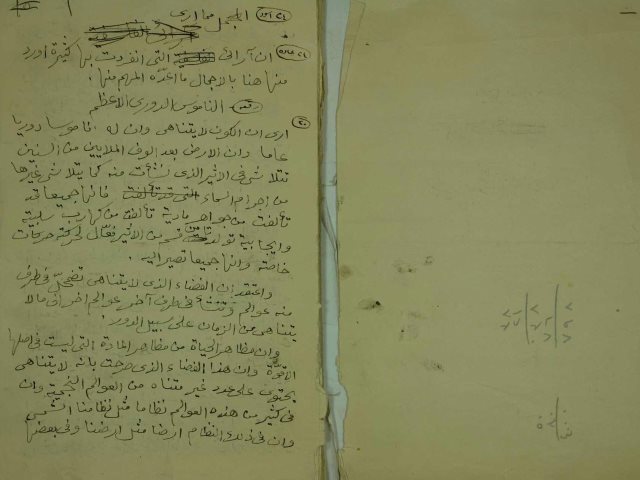 المجمل مما ارى
ان آرائى التى انفردت بها كثيرة اورد
منها هنا بالاجمال ما اعده المهم منها .
الناموس الدورى الاعظم
ارى ان الكون لا يتناهى وان له ناموسا دوريا
عاما وان الارض بعد الوف الملايين من السنين
تتلاشى فى الاثير الذى نشأت منه كما يتلاشى غيرها
من اجرام السماء فانها جميعا قد
تألفت من جواهر مادية تألفت من كهارب سلبية
وايجابية تولد من الاثير فعّال لحركته حركات
خاصة وانها جميعا تصير اليه .
واعتقد ان الفضاء الذى لا يتناهى تضمحل فى طرف
منه عوالم وتنشأ فى طرف آخر عوالم اخرى الى ما لا
يتناهى من الزمان على سبيل الدور .
وان مظاهر الحياة من مظاهر المادة التى ليست فى اصلها
الا قوة وان هذا الفضاء الذى صرحت بانه لا يتناهى
يحتوى على عدد غير متناه من العوالم النجمية وان
فى كثير من هذه العوالم نظاما مثل نظامنا الشمسى
وان فى ذلك النظام ارضا مثل ارضنا وفى بعضها